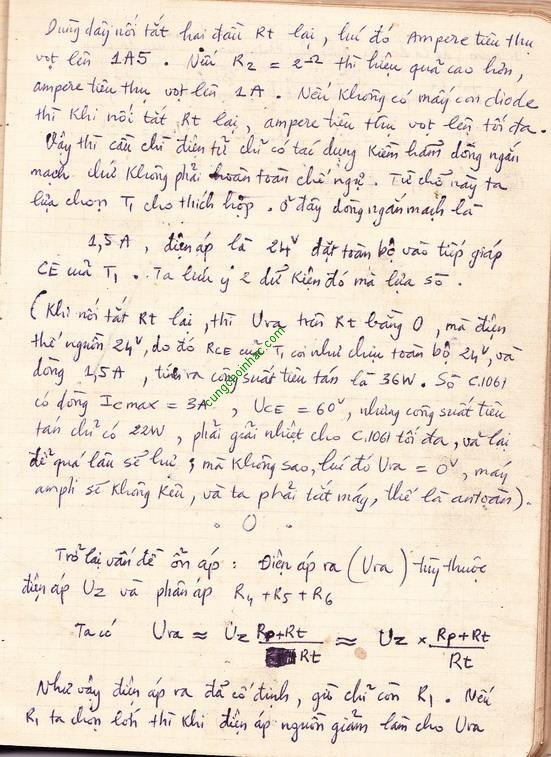 Dùng dây nối tắt hai đầu Rt lại, lúc đó Ampere tiêu thụ
vọt lên 1A5. Nếu R2 = 2Ω thì hiệu quả cao hơn,
ampere tiêu thụ vọt lên 1A. Nếu không có mấy con diode
thì khi nối tắt Rt lại, ampere tiêu thụ vọt lên tối đa.
Vậy thì cầu chì điện tử chỉ có tác dụng kiềm hãm dòng ngắn
mạch chứ không phải hoàn toàn chế ngự. Từ chỗ này ta
lựa chọn T1 cho thích hợp. Ở đây dòng ngắn mạch là
1,5A, điện áp là 24V đặt toàn bộ vào tiếp giáp
CE của T1. Ta lưu ý 2 dữ kiện đó mà lựa sò.
(Khi nối tắt Rt lại, thì Ura trên Rt bằng 0, mà điện
thế nguồn 24V, do đó RCE của T1 coi như chịu toàn bộ 24V, và
dòng 1,5A, tính ra công suất tiêu tán là 36W. Sò C.1061
có dòng Icmax = 3A, UCE = 60V, nhưng công suất tiêu
tán chỉ có 22W, phải giải nhiệt cho C.1061 tối đa, và lại
để quá lâu sẽ hư; mà không sao, lúc đó Ura = 0V, máy
ampli sẽ không kêu, và ta phải tắt máy, thế là an toàn).
. O .
Trở lại vấn đề ổn áp: Điện áp ra (Ura) tùy thuộc
điện áp Uz và phân áp R4+R5+R6
Ta có Ura ≈ Uz Rp+Rt / Rt ≈ Uz × Rp+Rt / Rt
Như vậy điện áp ra đã cố định, giờ chỉ còn R1. Nếu
R1 ta chọn lớn thì khi điện áp nguồn giảm làm cho Ura
cungchoinhac.com